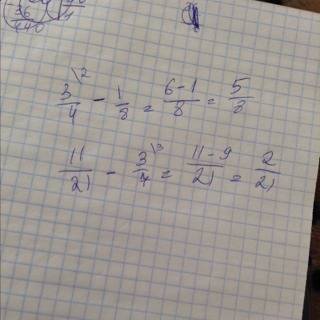 36
440
3/4 \2 - 1/8 = 6-1/8 = 5/8
11/21 - 3/7 \3 = 11-9/21 = 2/21